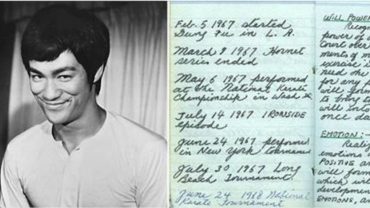 Feb. 5 1967 started
Jung Fu in L. A.
March 9 1967 Hornet
series ended
May 6 1967 performed
at the National Karate
Championship in Wash
July 14 1967 IRONSIDE
episode
June 24 1967 performed
in New York tournam
July 30 1967 Long
Beach Tournament
June 24 1968 National
Karate Tournament
WILL POWER
Recog
power of
Court over
ments of m
exercise
need the
for any p
will form
to bring t
will
once da
EMOTION:-
Reali
emotions
POSITIVE an
will form
which will
development
EMOTIONS, an